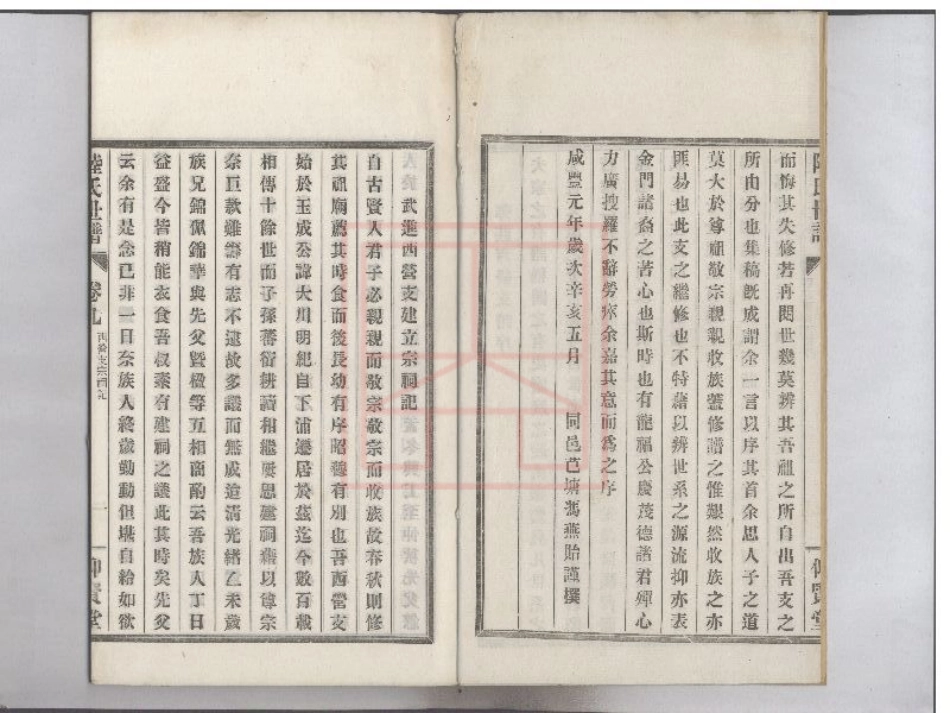 而悔其失修若再閱世幾莫辨其吾祖之所自出吾支之
所由分也集稿既成謂余一言以序其首余思人子之道
莫大於尊祖敬宗親親收族蓋修譜之惟艱然收族之亦
匪易也此支之繼修也不特藉以辨世系之源流抑亦表
金門諸裔之苦心也斯時也有龍福公慶茂德諸君殫心
力廣搜羅不辭勞瘁余嘉其意而為之序
咸豐元年歲次辛亥五月 同邑芑塘馮燕貽謹撰
武進西營支建立宗祠記
自古賢人君子必親親而敬宗敬宗而收族故春秋則修
其祖廟薦其時食而後長幼有序昭穆有別也吾西營支
始於玉成公諱大川明紀自下浦遷居於茲迄今數百載
相傳十餘世而子孫蕃衍耕讀相繼屢思建祠藉以尊宗
奈巨款難籌有志不逮故多議而無成迨清光緒乙未歲
族兄錦佩錦華與先父暨楹等互相商酌云吾族人丁日
益盛今皆稍能衣食吾叔素有建祠之議此其時矣先父
云余有是念已非一日奈族人終歲勤動但堪自給如欲
陸氏世譜 卷九 西營支宗祠記 一 仰賢堂